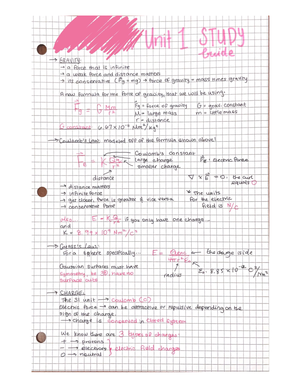 Unit 1 STUDY
Guide
GRAVITY:
→ a force that is infinite
→ a weak force and distance matters
→ its conservative (Fg = mg) → force of gravity = mass times gravity
A new formula for the force of gravity, that we will be using:
Fg = G Mm/r²
Fg = force of gravity G = grav. constant
M = large mass m = little mass
r = distance
G constant: 6.67 x 10⁻¹¹ Nm²/kg²
Coulomb's Law: modeled off of the formula shown above!
Coulomb's constant
large charge
smaller charge
FE: Electric Force
distance
→ distance matters
→ infinite force
→ the closer, force is greater & vice versa
→ conservative force
* the units
for the electric
field is N/C
also... E = if you only have one charge...
and
K = 8.99 x 10⁹ Nm²/C²
Gauss's Law:
For a sphere specifically... E = the charge inside
Gaussian Surfaces must have
symmetry, be 3D, have no
surface
radius
CHARGE:
The SI unit → coulomb (C)
Electric force → can be attractive or repulsive depending on the
sign of the charge.
→ charge is conserved in closed system
We know there are 3 types of charges:
+ → protons
- → electrons } electric field charges
0 → neutral